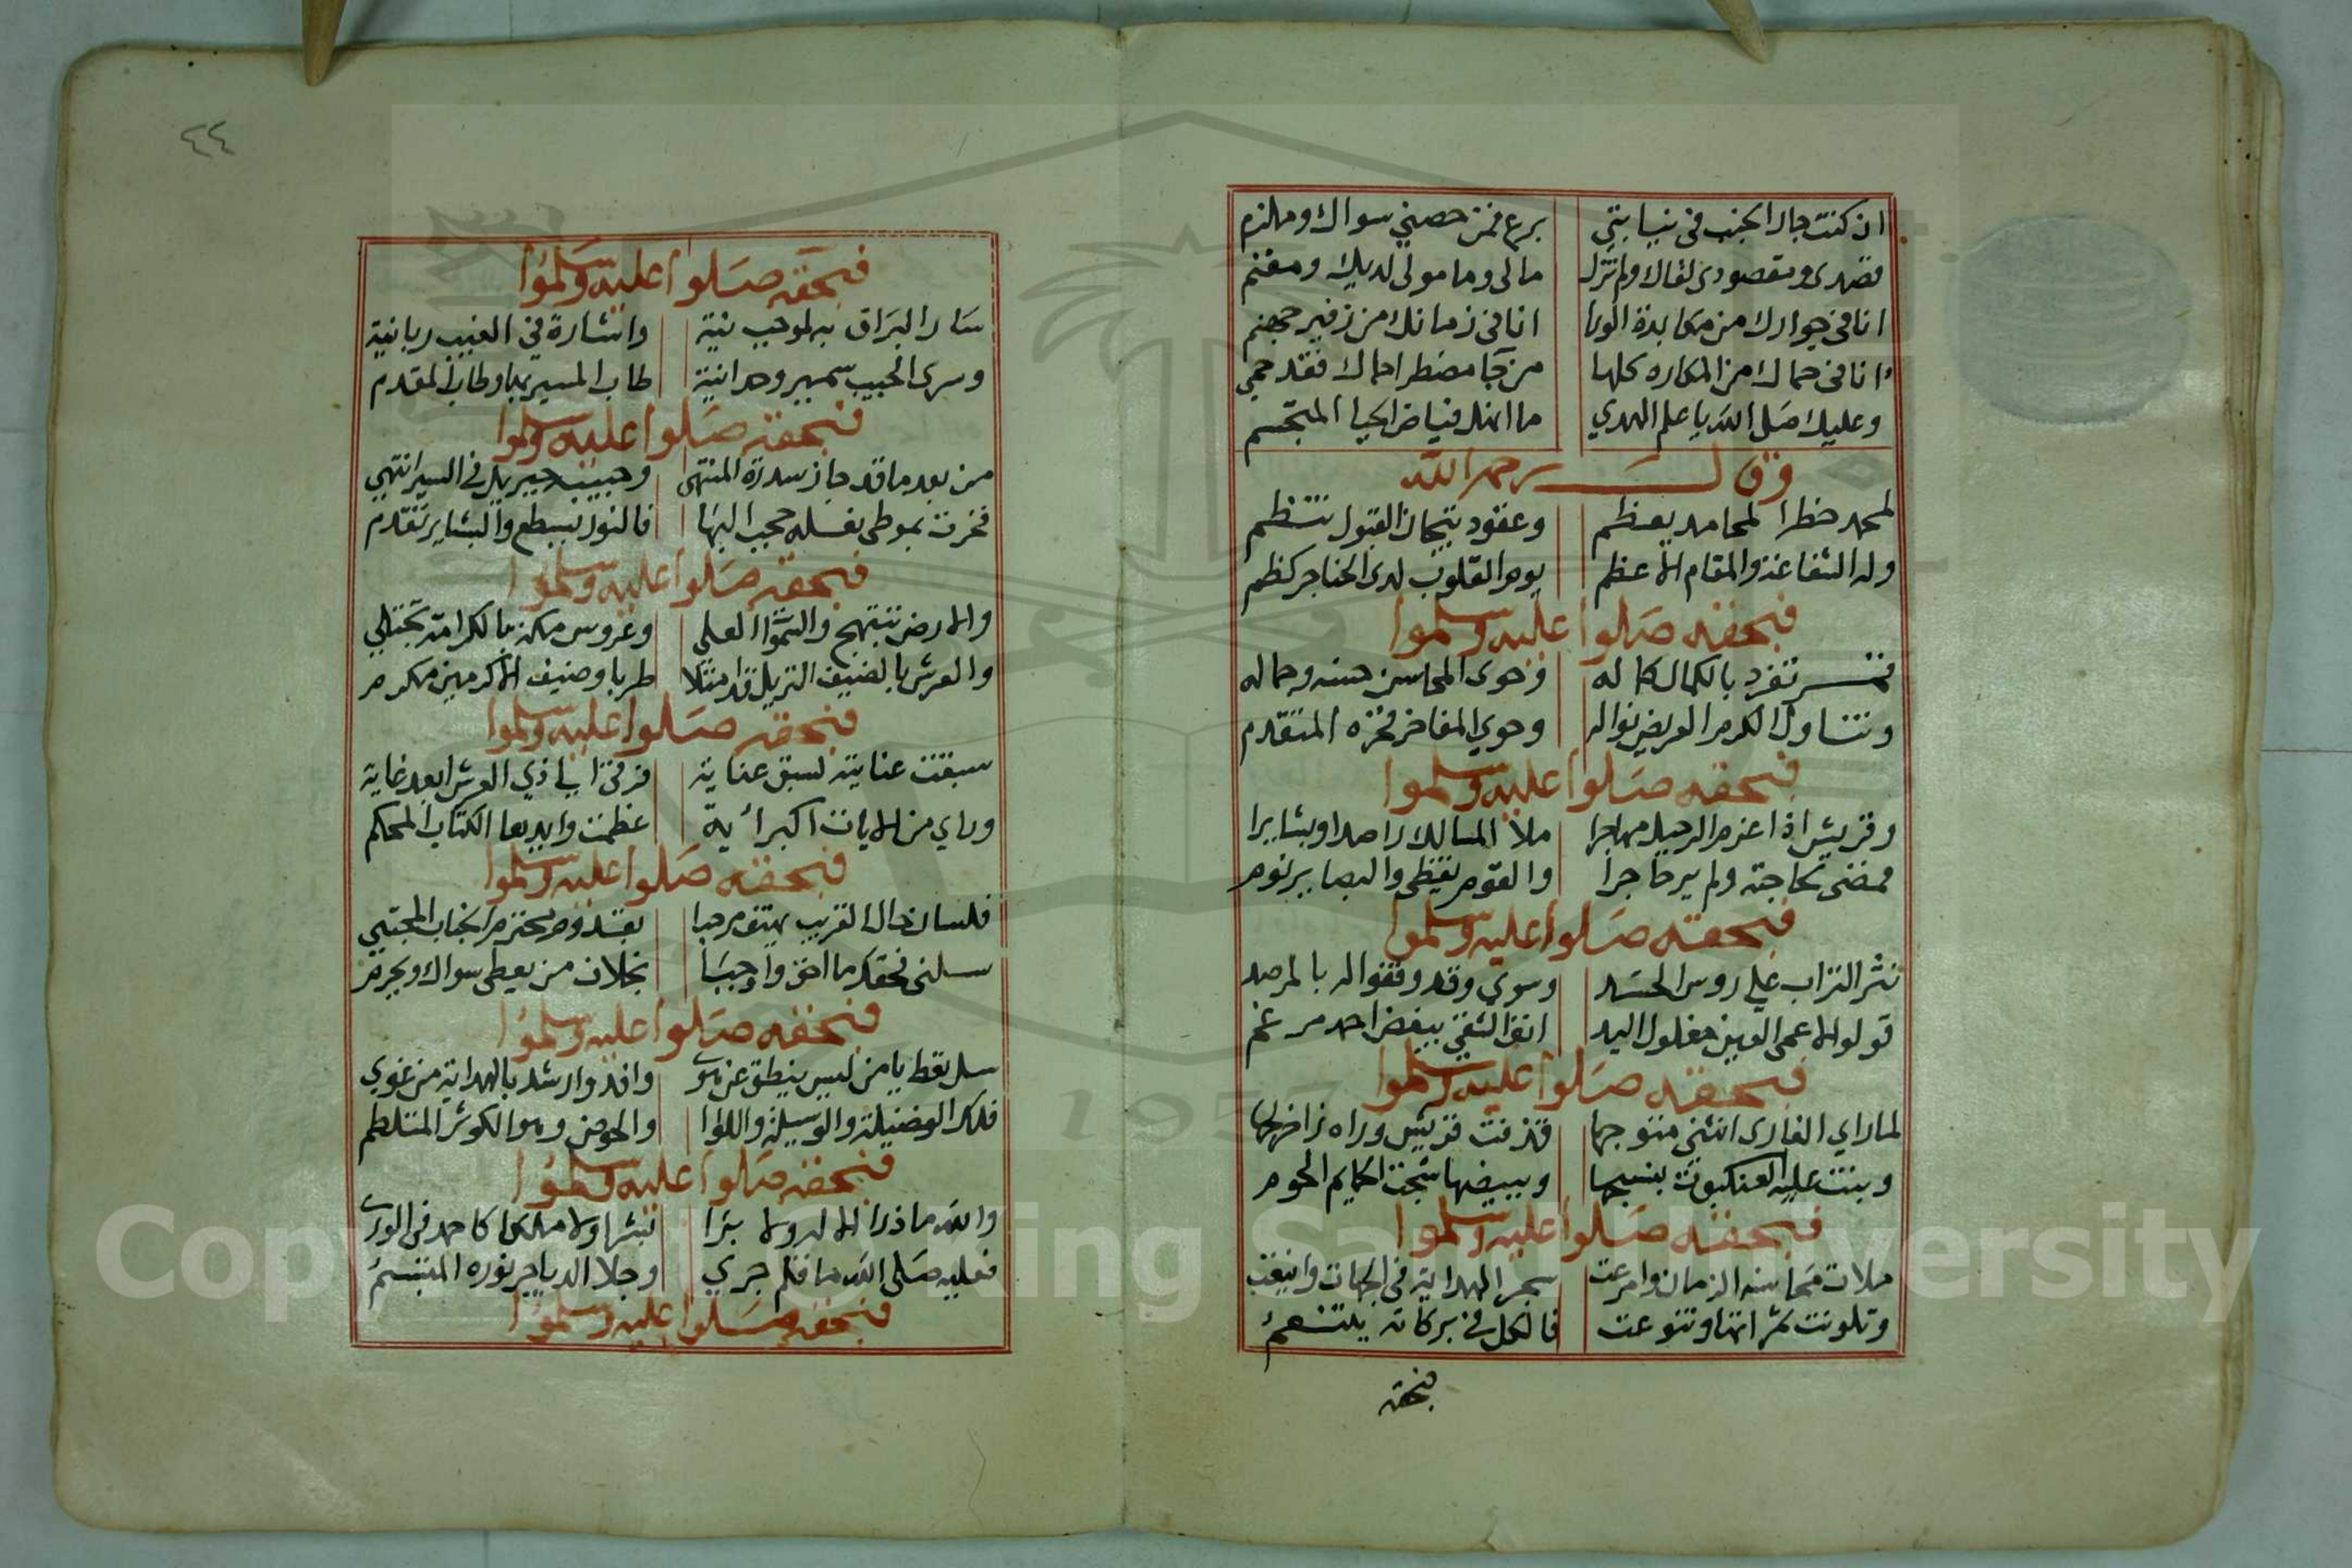 ان كنت جار الجنب في نيابتي برع فمن حصني سواك وملزم
قصدي ومقصودي لقاك ولم تزل مالي ومامولي لديك ومغنم
انا في جوارك من مكابدة الورا انا في زمانك من زفير جهنم
انا في حماك من المكاره كلها من جا مضطرا حماك فقد حمي
وعليك صلى الله يا علم الهدي ما انهل فياض الحيا المتبجسم
وقال رحمه الله
لمحمد خطر المحامد يعظم وعقود تيجان القبول تنتظم
وله الشفاعة والمقام الاعظم يوم القلوب لدى الحناجر كظم
فبحقه صلوا عليه وسلموا
قمر تفرد بالكمال كاله وحوى المحاسن حسنه وجماله
وتناول الكرم العريض نواله وحوي المفاخر فخره المتقدم
فبحقه صلوا عليه وسلموا
وقريش اذا عزم الرحيل مهاجرا ملا المسالك راصدا وبشايرا
فمضى لحاجته ولم ير حاجرا والقوم يقظى والبصاير نوم
فبحقه صلوا عليه وسلموا
نثر التراب علي روس الحسد وسري وقد وقفوا له بالمرصد
قولوا لاعمى العين مغلول اليد انف الشقي ببغض احمد مرغم
فبحقه صلوا عليه وسلموا
لما راي الغار انثنى متوجها قذفت قريش وراه نزاخبها
وبنت عليه العنكبوت بنسجها وببيضها سجت الحمايم الحوم
فبحقه صلوا عليه وسلموا
ملات محاسنه الزمان وامرعت سحر الهداية في الجهات واينعت
وتلونت ثمراتها وتنوعت فالكل في بركاته يتنعم
فبحقه
٤٤
فبحقه صلوا عليه وسلموا
سار البراق به لموجب نية واشارة في الغيب ربانية
وسرى الحبيب سمير وحدانية طاب المسير بها وطاب المقدم
فبحقه صلوا عليه وسلموا
من بعد ما قد جاز سدرة المنتهى وحبيب جبريل في السير انتهي
فخرت بموطى نعله حجب البها فالنور يسطع والبشاير تقدم
فبحقه صلوا عليه وسلموا
والارض تبتهج والسموا العلى وعروس مكة بالكرامة تجتلي
والعرش بالضيف النزيل قد امتلا طربا وضيف الاكرمين مكرم
فبحقه صلوا عليه وسلموا
سبقت عنايته لسبق عناية فرقى الي ذي العرش ابعد غاية
وراي من الايات اكبر أية عظمت وايدها الكتاب المحكم
فبحقه صلوا عليه وسلموا
فلسان حال القرب يهتف مرحبا بقدوم محترم الجناب المجتبي
سلني فحقك ما احق واوجبا بخلان من يعطى سواك ويحرم
فبحقه صلوا عليه وسلموا
سل تعط يا من ليس ينطق عن هوى وافد وارشد بالهداية من غوي
فلك الفضيلة والوسيلة واللوا والحوض وهو الكوثر المتلطم
فبحقه صلوا عليه وسلموا
والله ما ذرا الاله ولا برا بشرا ولا ملكا كاحمد في الورى
فعليه صلى الله ما قلم جري وجلا الدياجر نوره المتبسم
فبحقه صلوا عليه وسلموا
Copyright © King Saud University
1957